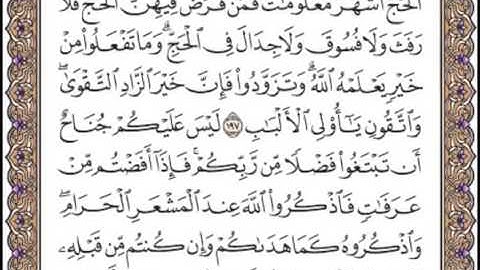 ٱلْحَجُّ أَشْهُرٌ مَّعْلُومَٰتٌ فَمَن فَرَضَ فِيهِنَّ ٱلْحَجَّ فَلَا
رَفَثَ وَلَا فُسُوقَ وَلَا جِدَالَ فِي ٱلْحَجِّ ۗ وَمَا تَفْعَلُوا۟ مِنْ
خَيْرٍ يَعْلَمْهُ ٱللَّهُ ۗ وَتَزَوَّدُوا۟ فَإِنَّ خَيْرَ ٱلزَّادِ ٱلتَّقْوَىٰ ۖ
وَٱتَّقُونِ يَٰٓأُو۟لِي ٱلْأَلْبَٰبِ ١٩٧ لَيْسَ عَلَيْكُمْ جُنَاحٌ
أَن تَبْتَغُوا۟ فَضْلًا مِّن رَّبِّكُمْ ۚ فَإِذَآ أَفَضْتُم مِّنْ
عَرَفَٰتٍ فَٱذْكُرُوا۟ ٱللَّهَ عِندَ ٱلْمَشْعَرِ ٱلْحَرَامِ ۖ
وَٱذْكُرُوهُ كَمَا هَدَىٰكُمْ وَإِن كُنتُم مِّن قَبْلِهِۦ